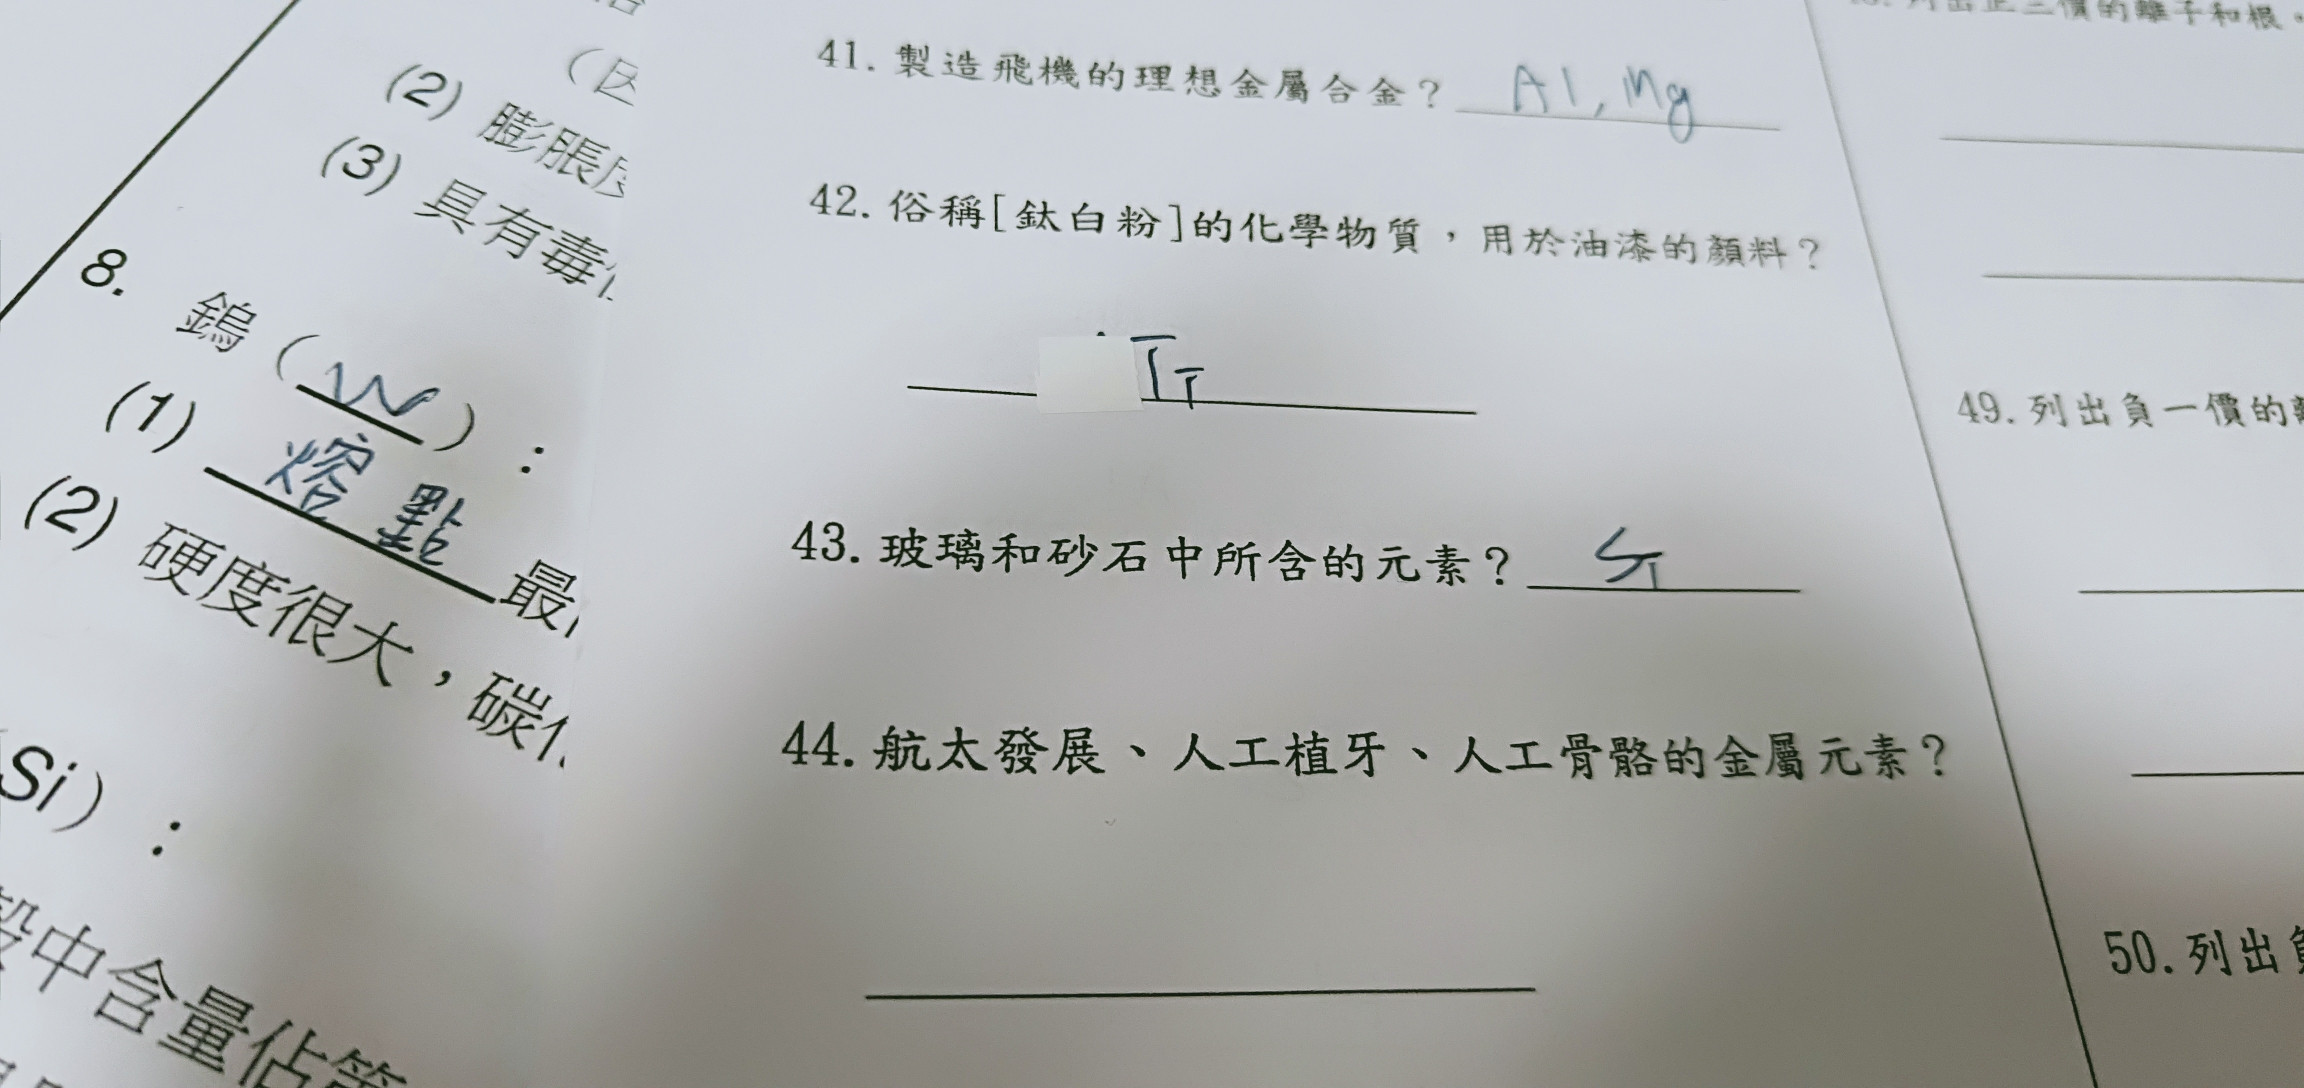 (因
(2) 膨脹
(3) 具有毒
8. 鎢（W）：
(1) 熔點最
(2) 硬度很大，碳
Si）：
殼中含量佔第
41. 製造飛機的理想金屬合金？ Al, Mg
42. 俗稱[鈦白粉]的化學物質，用於油漆的顏料？
Ti
43. 玻璃和砂石中所含的元素？ Si
44. 航太發展、人工植牙、人工骨骼的金屬元素？
列出正二價的離子和根。
49. 列出負一價的
50. 列出負